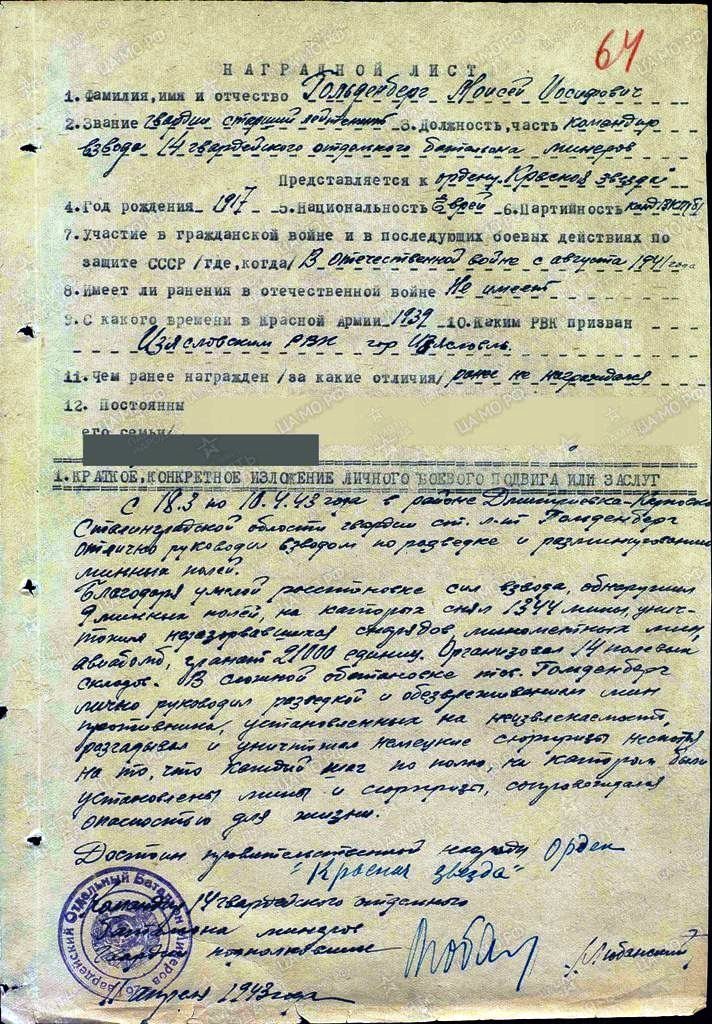 64
НАГРАДНОЙ ЛИСТ
1. Фамилия, имя и отчество Гольденберг Моисей Иосифович
2. Звание гвардии старший лейтенант 3. Должность, часть командир
взвода 14 гвардейского отдельного батальона минеров
Представляется к ордену "Красная звезда"
4. Год рождения 1917 5. Национальность Еврей 6. Партийность канд. ВКП/б/
7. Участие в гражданской войне и в последующих боевых действиях по
защите СССР /где, когда/ В Отечественной войне с августа 1941 года
8. Имеет ли ранения в отечественной войне Не имеет
9. С какого времени в Красной Армии 1939 10. Каким РВК призван
Изяславским РВК гор. Изяславль
11. Чем ранее награжден /за какие отличия/ ранее не награждался
12. Постоянны
его семьи/
1. КРАТКОЕ, КОНКРЕТНОЕ ИЗЛОЖЕНИЕ ЛИЧНОГО БОЕВОГО ПОДВИГА ИЛИ ЗАСЛУГ
С 18.3 по 10.4.43 года в районе
Сталинградской области гвардии ст. л-нт Гольденберг
отлично руководил взводом по разведке и разминированию
минных полей.
Благодаря умелой расстановке сил взвода, обнаружил
9 минных полей, на которых снял 1344 мины, унич-
тожил незазорвавшихся снарядов минометных мин,
авиабомб, гранат 21000 единиц. Организовал 14 полевых
складов. В сложной обстановке тов. Гольденберг
лично руководил разведкой и обезвреживанием мин
противника, установленных на неизвлекаемость,
разгадывал и уничтожал немецкие сюрпризы несмотря
на то, что каждый шаг по полю, на котором были
установлены мины и сюрпризы, сопровождался
опасностью для жизни.
Достоин правительственной награды Орден
"Красная звезда"
Командир 14 гвардейского отдельного
батальона минеров
Гвардии подполковник
/Любанский/
11 апреля 1943 года
Гвардейский Отдельный Батальон минеров
ЦАМО.РФ